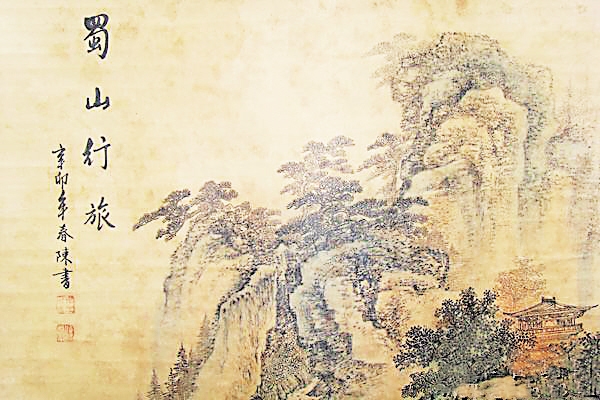 蜀山行旅
辛卯年春陳書